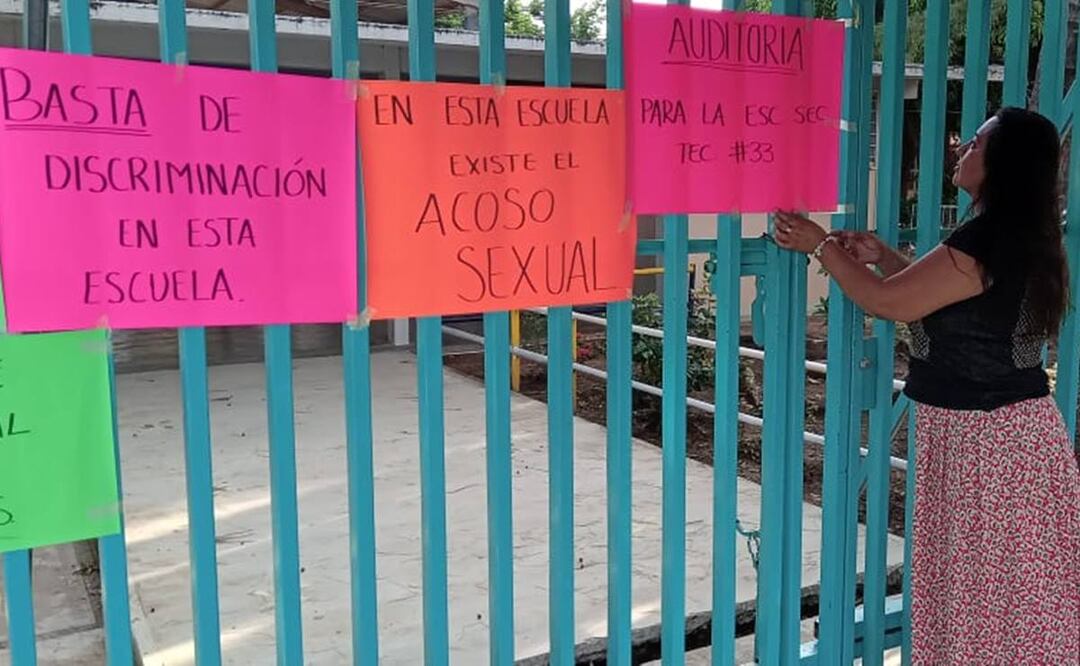 BASTA DE
DISCRIMINACIÓN
EN ESTA
ESCUELA.
EN ESTA ESCUELA
EXISTE EL
ACOSO
SEXUAL
AUDITORIA
PARA LA ESC SEC
TEC #33